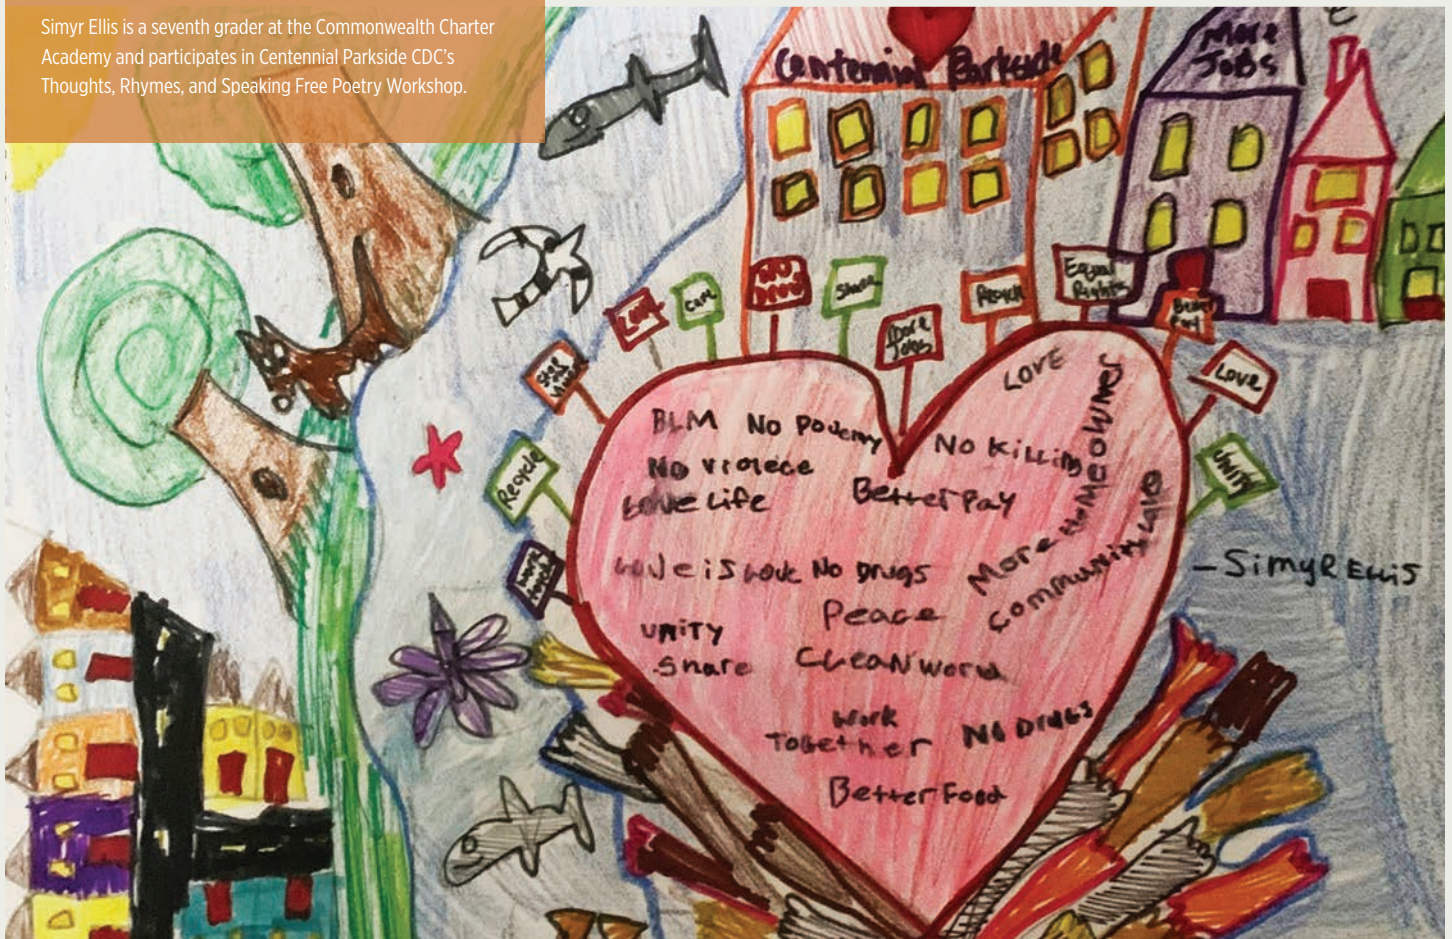 Simyr Ellis is a seventh grader at the Commonwealth Charter
Academy and participates in Centennial Parkside CDC's
Thoughts, Rhymes, and Speaking Free Poetry Workshop.
Centennial Parkside
More
JoBs
Care
Share
More
Jobs
Equal
Rights
Love
UNity
Recycle
BLM
No
LOVE
No Killing
No Violece
Love Life
Better Pay
More HoMeOWNer
Community Love
Love is Love
No Drugs
Peace
UNiTY
Share
CLeaN World
Work
Together
No Drugs
Better Food
-SimyR Ellis